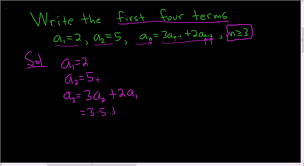 Write the first four terms
a₁=2, a₂=5, aₙ=3aₙ₋₁+2aₙ₋₂, n≥3
Sol
a₁=2
a₂=5
a₃=3a₂+2a₁
=3·5